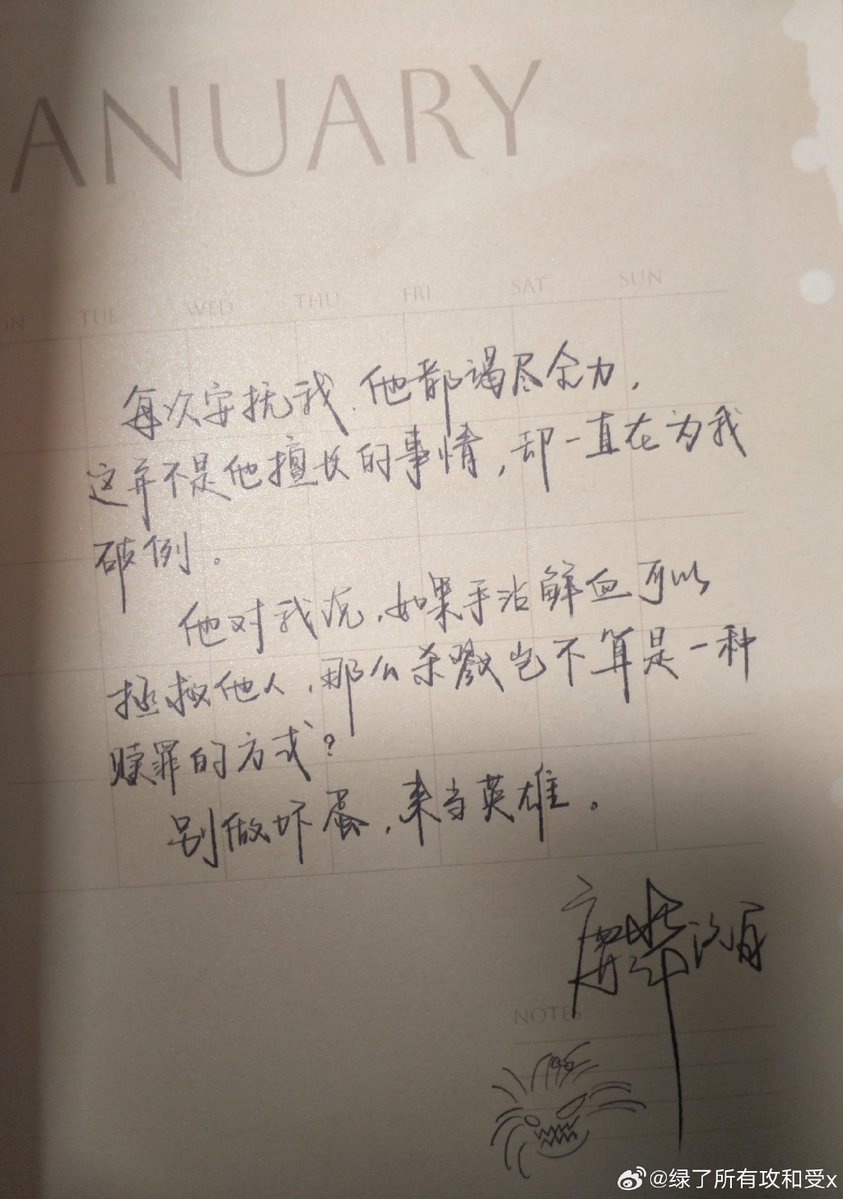 ANUARY
ON TUE WED THU FRI SAT SUN
每次安抚我，他都竭尽全力，
这并不是他擅长的事情，却一直在为我
破例。
他对我说，如果手沾鲜血可以
拯救他人，那么杀戮岂不算是一种
赎罪的方式？
别做坏蛋，来当英雄。
NOTES
@绿了所有攻和受x